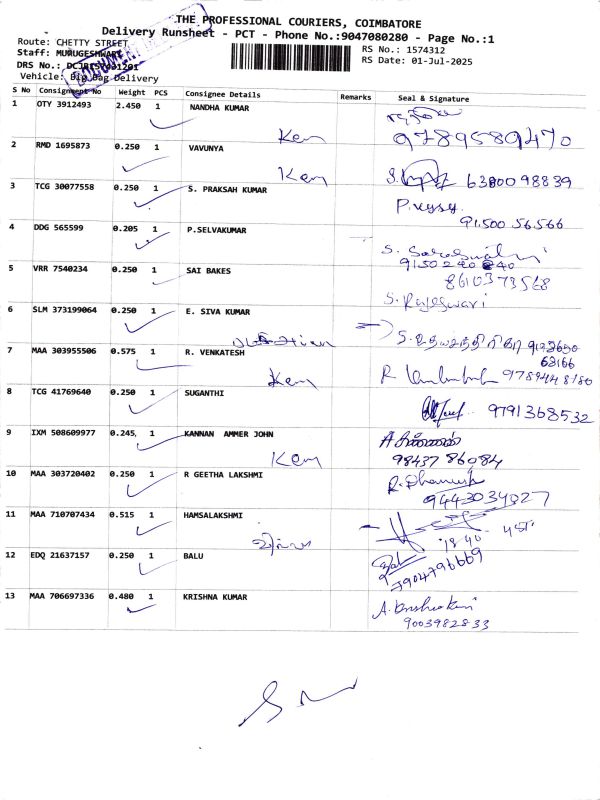 THE PROFESSIONAL COURIERS, COIMBATORE
Delivery Runsheet - PCT - Phone No.:9047080280 - Page No.:1
Route: CHETTY STREET
RS No.: 1574312
Staff: MURUGESHWARI
RS Date: 01-Jul-2025
DRS No.:
Vehicle: Big Bag Delivery
S No Consignment No Weight PCS Consignee Details Remarks Seal & Signature
1 OTY 3912493 2.450 1 NANDHA KUMAR
9789589470
2 RMD 1695873 0.250 1 VAVUNYA
6380098839
3 TCG 30077558 0.250 1 S. PRAKSAH KUMAR
91500 56566
4 DDG 565599 0.205 1 P.SELVAKUMAR
S. Saraswathi
9150240840
5 VRR 7540234 0.250 1 SAI BAKES
8610373568
S. Rajeswari
6 SLM 373199064 0.250 1 E. SIVA KUMAR
63166
7 MAA 303955506 0.575 1 R. VENKATESH
8 TCG 41769640 0.250 1 SUGANTHI
9791368532
9 IXM 508609977 0.245, 1 KANNAN AMMER JOHN
98437 86084
10 MAA 303720402 0.250 1 R GEETHA LAKSHMI
R. Dhanush
9443034027
11 MAA 710707434 0.515 1 HAMSALAKSHMI
12 EDQ 21637157 0.250 1 BALU
7904796669
13 MAA 706697336 0.480 1 KRISHNA KUMAR
9003982833